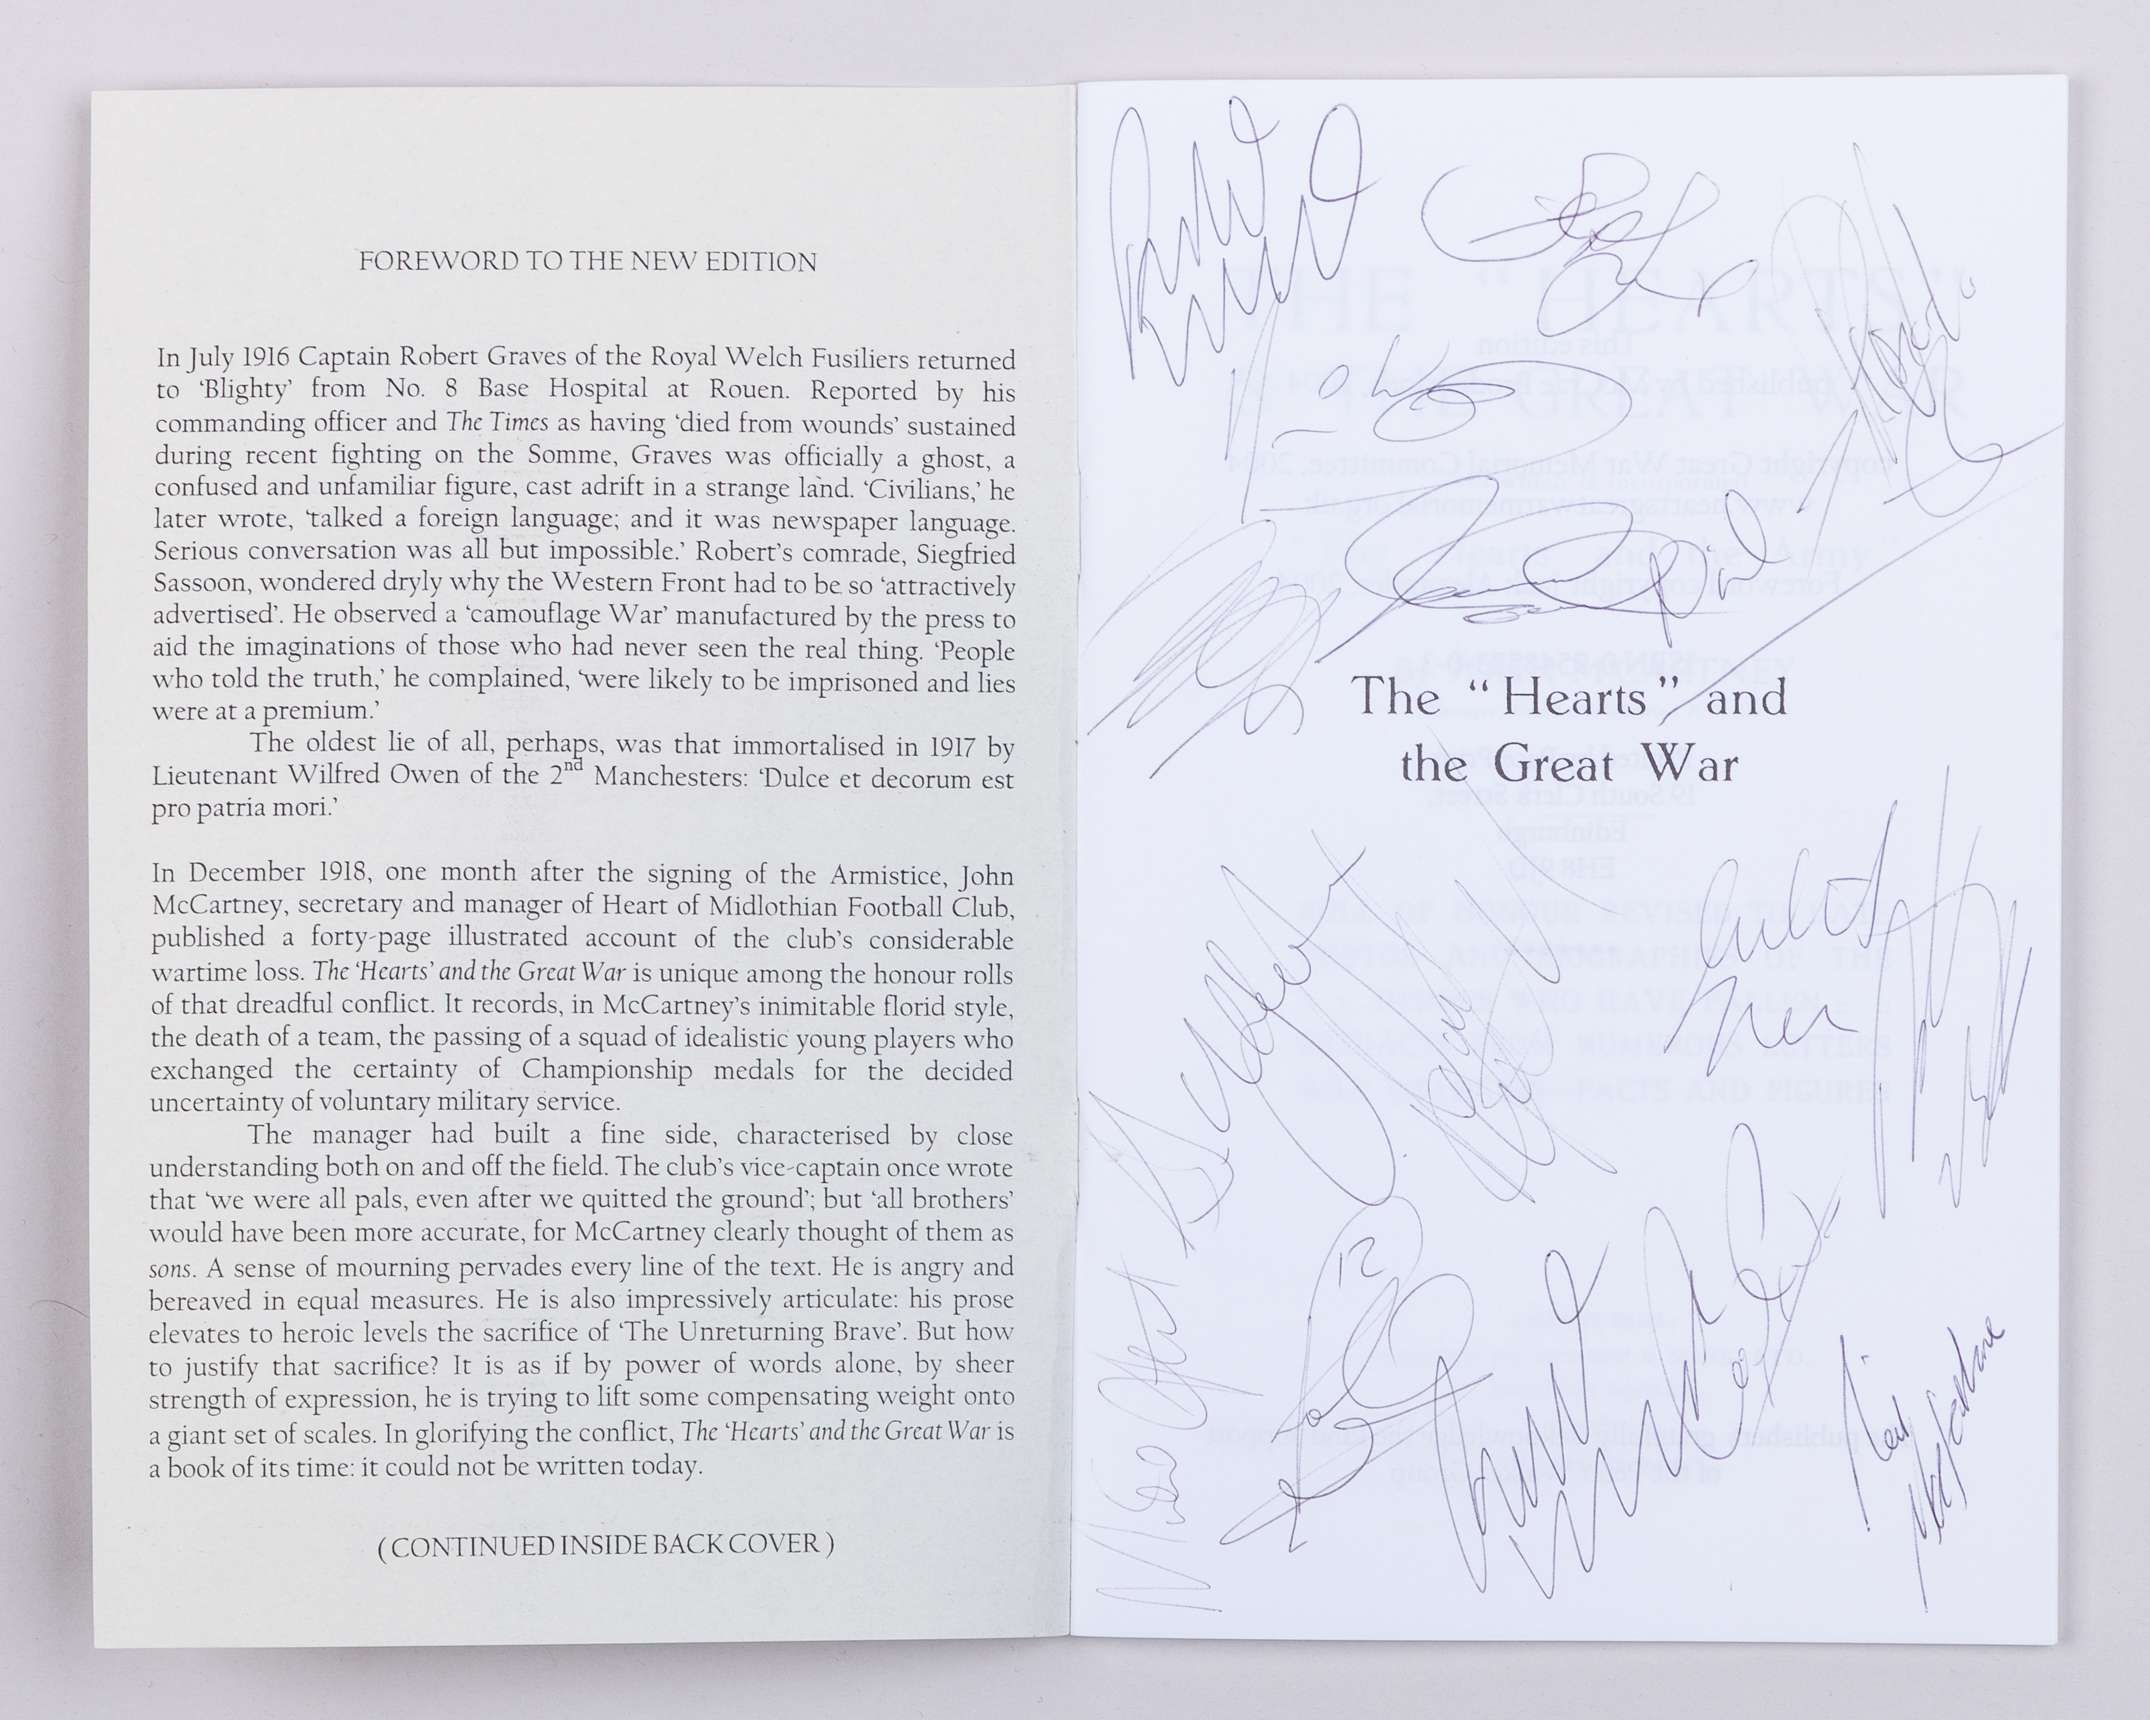 FOREWORD TO THE NEW EDITION
In July 1916 Captain Robert Graves of the Royal Welch Fusiliers returned
to ‘Blighty’ from No. 8 Base Hospital at Rouen. Reported by his
commanding officer and The Times as having ‘died from wounds’ sustained
during recent fighting on the Somme, Graves was officially a ghost, a
confused and unfamiliar figure, cast adrift in a strange land. ‘Civilians,’ he
later wrote, ‘talked a foreign language; and it was newspaper language.
Serious conversation was all but impossible.’ Robert’s comrade, Siegfried
Sassoon, wondered dryly why the Western Front had to be so ‘attractively
advertised’. He observed a ‘camouflage War’ manufactured by the press to
aid the imaginations of those who had never seen the real thing. ‘People
who told the truth,’ he complained, ‘were likely to be imprisoned and lies
were at a premium.’
The oldest lie of all, perhaps, was that immortalised in 1917 by
Lieutenant Wilfred Owen of the 2nd Manchesters: ‘Dulce et decorum est
pro patria mori.’
In December 1918, one month after the signing of the Armistice, John
McCartney, secretary and manager of Heart of Midlothian Football Club,
published a forty-page illustrated account of the club’s considerable
wartime loss. The ‘Hearts’ and the Great War is unique among the honour rolls
of that dreadful conflict. It records, in McCartney’s inimitable florid style,
the death of a team, the passing of a squad of idealistic young players who
exchanged the certainty of Championship medals for the decided
uncertainty of voluntary military service.
The manager had built a fine side, characterised by close
understanding both on and off the field. The club’s vice-captain once wrote
that ‘we were all pals, even after we quitted the ground’; but ‘all brothers’
would have been more accurate, for McCartney clearly thought of them as
sons. A sense of mourning pervades every line of the text. He is angry and
bereaved in equal measures. He is also impressively articulate: his prose
elevates to heroic levels the sacrifice of ‘The Unreturning Brave’. But how
to justify that sacrifice? It is as if by power of words alone, by sheer
strength of expression, he is trying to lift some compensating weight onto
a giant set of scales. In glorifying the conflict, The ‘Hearts’ and the Great War is
a book of its time: it could not be written today.
(CONTINUED INSIDE BACK COVER)
The “Hearts” and
the Great War
12
Neil
MacFarlane